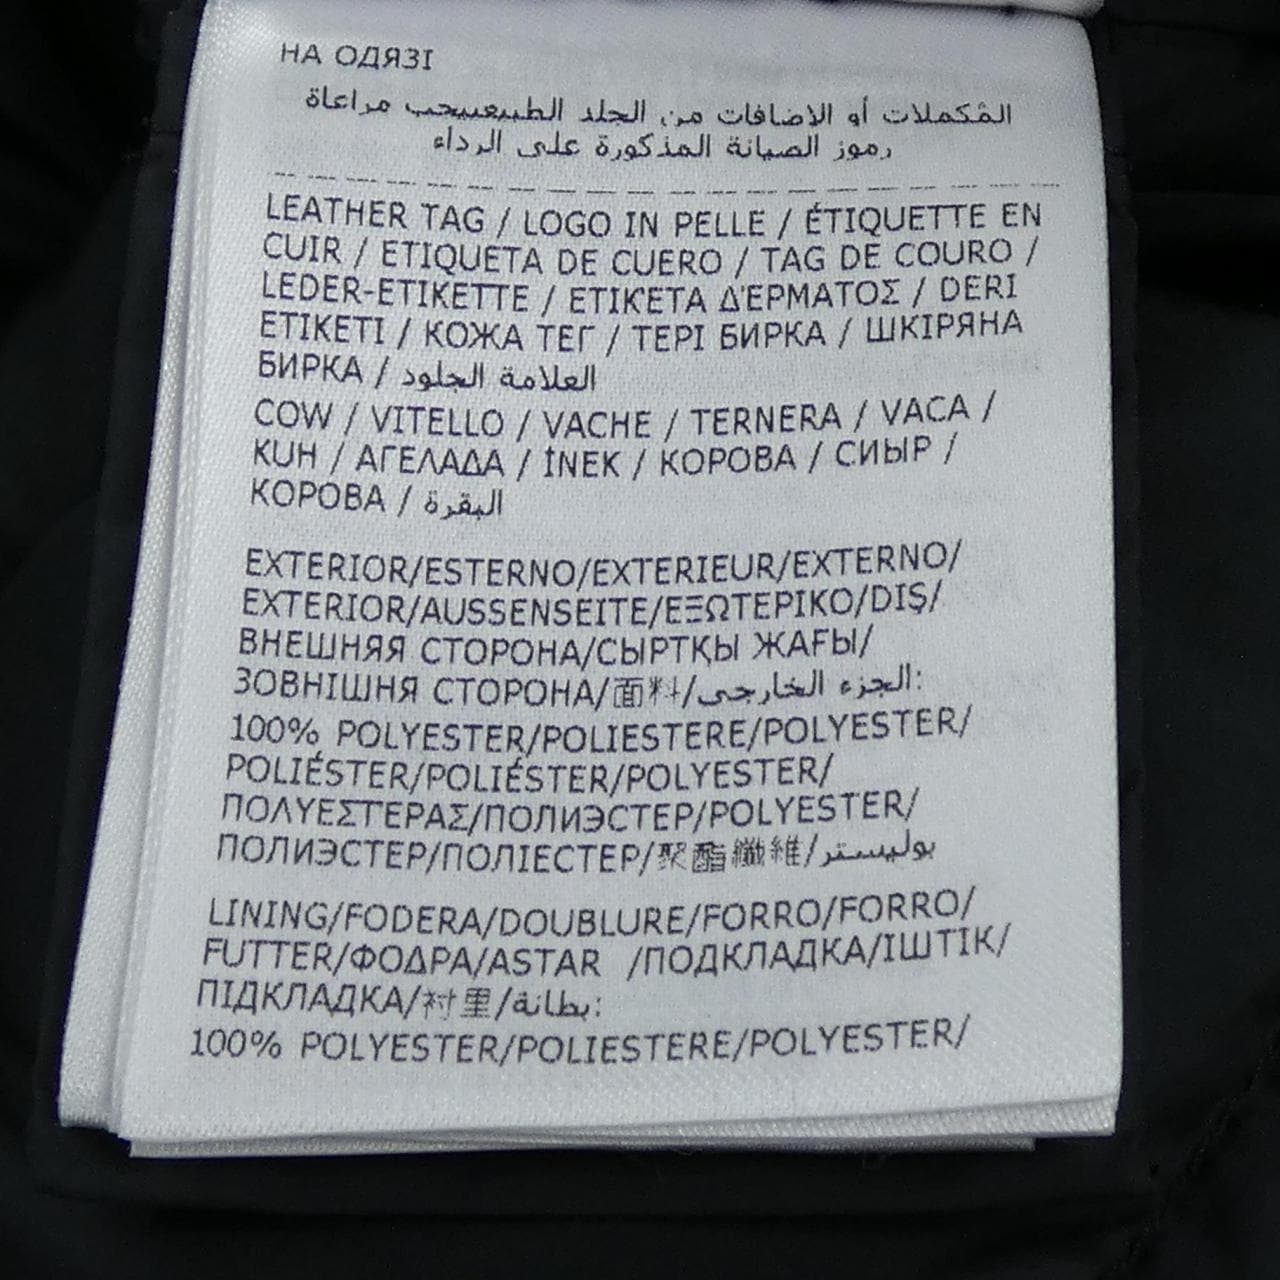 НА ОДЯЗІ
المُكملات أو الاضافات من الجلد الطبيعييجب مراعاة
رموز الصيانة المذكورة على الرداء
LEATHER TAG / LOGO IN PELLE / ÉTIQUETTE EN
CUIR / ETIQUETA DE CUERO / TAG DE COURO /
LEDER-ETIKETTE / ΕΤΙΚΈΤΑ Δ'ΕΡΜΑΤΟΣ / DERI
ETIKETI / КОЖА ТЕГ / ТЕРІ БИРКА / ШКІРЯНА
БИРКА / العلامة الجلود
COW / VITELLO / VACHE / TERNERA / VACA /
KUH / ΑΓΕΛΑΔΑ / İNEK / КОРОВА / СИЫР /
КОРОВА / البقرة
EXTERIOR/ESTERNO/EXTERIEUR/EXTERNO/
EXTERIOR/AUSSENSEITE/ΕΞΩΤΕΡΙΚΟ/DIŞ/
ВНЕШНЯЯ СТОРОНА/СЫРТҚЫ ЖАҒЫ/
ЗОВНІШНЯ СТОРОНА/面料/الجزء الخارجى:
100% POLYESTER/POLIESTERE/POLYESTER/
POLIÉSTER/POLIÉSTER/POLYESTER/
ΠΟΛΥΕΣΤΕΡΑΣ/ПОЛИЭСТЕР/POLYESTER/
ПОЛИЭСТЕР/ПОЛІЕСТЕР/聚酯纖維/بوليستر
LINING/FODERA/DOUBLURE/FORRO/FORRO/
FUTTER/ΦΟΔΡΑ/ASTAR /ПОДКЛАДКА/ІШТІК/
ПІДКЛАДКА/衬里/بطانة:
100% POLYESTER/POLIESTERE/POLYESTER/